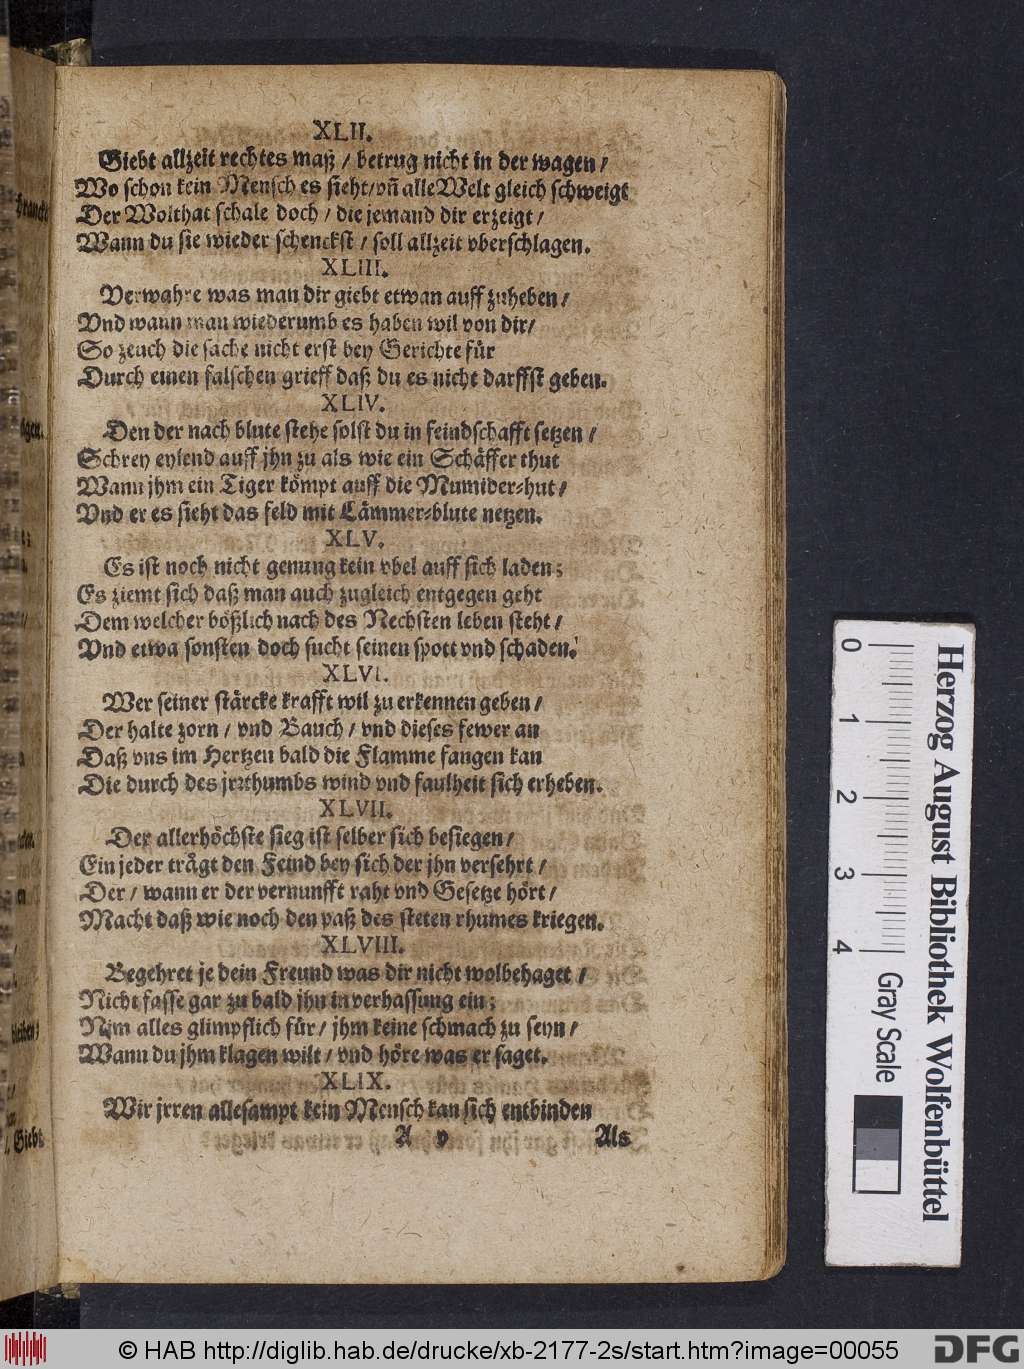 XLII.
Giebt allzeit rechtes maß / betrug nicht in der wagen /
Wo schon kein Mensch es sieht / vñ alle Welt gleich schweigt
Der Wolthat schale doch / die jemand dir erzeigt /
Wann du sie wieder schenckst / soll allzeit vberschlagen.
XLIII.
Verwahre was man dir giebt etwan auff zuheben /
Vnd wann man wiederumb es haben wil von dir /
So zeuch die sache nicht erst bey Gerichte für
Durch einen falschen grieff daß du es nicht darffst geben.
XLIV.
Den der nach blute stehe solst du in feindschafft setzen /
Schrey eylend auff jhn zu als wie ein Schäffer thut
Wann jhm ein Tiger kömpt auff die Mumider-hut /
Vnd er es sieht das feld mit Lämmer-blute netzen.
XLV.
Es ist noch nicht genung kein vbel auff sich laden;
Es ziemt sich daß man auch zugleich entgegen geht
Dem welcher bößlich nach des Nechsten leben steht /
Vnd etwa sonsten doch sucht seinen spott vnd schaden.
XLVI.
Wer seiner stärcke krafft wil zu erkennen geben /
Der halte zorn / vnd Bauch / vnd dieses fewer an
Daß vns im Hertzen bald die Flamme fangen kan
Die durch des jrrthumbs wind vnd faulheit sich erheben.
XLVII.
Der allerhöchste sieg ist selber sich besiegen /
Ein jeder trägt den Feind bey sich der jhn versehrt /
Der / wann er der vernunfft raht vnd Gesetze hört /
Macht daß wie noch den paß des steten rhumes kriegen.
XLVIII.
Begehret je dein Freund was dir nicht wolbehaget /
Nicht fasse gar zu bald jhn in verhassung ein;
Nim alles glimpflich für / jhm keine schmach zu seyn /
Wann du jhm klagen wilt / vnd höre was er saget.
XLIX.
Wir jrren allesampt kein Mensch kan sich entbinden
A v Als
Giebt
Herzog August Bibliothek Wolfenbüttel
0 1 2 3 4 Gray Scale
© HAB http://diglib.hab.de/drucke/xb-2177-2s/start.htm?image=00055
DFG